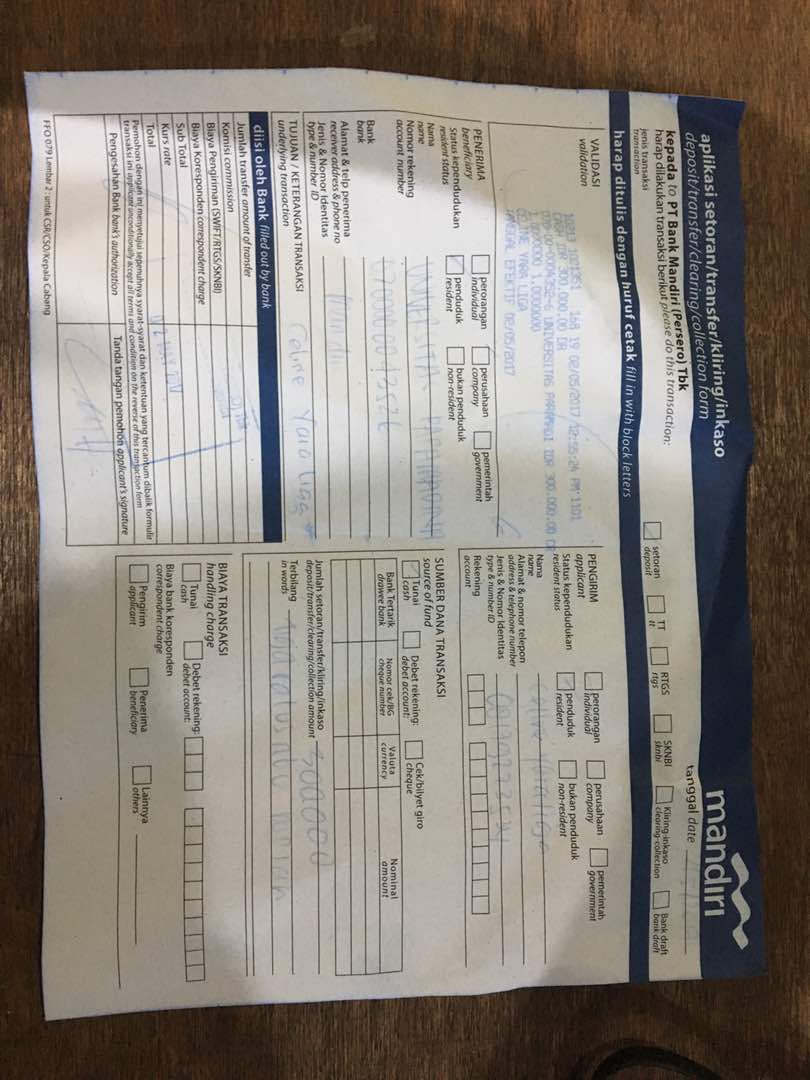 aplikasi setoran/transfer/kliring/inkaso
deposit/transfer/clearing/collection form
mandiri
kepada to PT Bank Mandiri (Persero) Tbk
harap dilakukan transaksi berikut please do this transaction:
tanggal date
jenis transaksi
transaction
setoran
deposit
TT
tt
RTGS
rtgs
SKNBI
sknbi
Kliring-inkaso
clearing-collection
Bank draft
bank draft
harap ditulis dengan huruf cetak fill in with block letters
VALIDASI
validation
168 19 02/05/2017
UNIVERSITAS IDR 300.000,00
CELINE YARA LIGA
TANGGAL EFEKTIF 02/05/2017
PENERIMA
beneficiary
perorangan
individual
perusahaan
company
pemerintah
government
Status kependudukan
resident status
penduduk
resident
bukan penduduk
non-resident
Nama
name
Nomor rekening
account number
Bank
bank
Alamat & telp penerima
receiver address & phone no
Jenis & Nomor Identitas
type & number ID
TUJUAN / KETERANGAN TRANSAKSI
underlying transaction
Celine Yara Liga
diisi oleh Bank filled out by bank
Jumlah transfer amount of transfer
Komisi commission
Biaya Pengiriman (SWIFT/RTGS/SKNBI)
Biaya Koresponden correspondent charge
Sub Total
Kurs rate
Total
Pemohon dengan ini menyetujui sepenuhnya syarat-syarat dan ketentuan yang tercantum dibalik formulir
transaksi ini applicant unconditionally accept all terms and condition on the reverse of this transaction form
Pengesahan Bank bank's authorization
Tanda tangan pemohon applicant's signature
FFO 079 Lembar 2 : untuk CSR/CSO/Kepala Cabang
PENGIRIM
applicant
perorangan
individual
perusahaan
company
pemerintah
government
Status kependudukan
resident status
penduduk
resident
bukan penduduk
non-resident
Nama
name
Alamat & nomor telepon
address & telephone number
Jenis & Nomor Identitas
type & number ID
Rekening
account
SUMBER DANA TRANSAKSI
source of fund
Tunai
cash
Debet rekening:
debet account:
Cek/bilyet giro
cheque
Bank Tertarik
drawee bank
Nomor cek/BG
cheque number
Valuta
currency
Nominal
amount
Jumlah setoran/transfer/kliring/inkaso
deposit/transfer/clearing/collection amount
Terbilang
in words
BIAYA TRANSAKSI
handling charge
Tunai
cash
Debet rekening:
debet account:
Biaya bank koresponden
correspondent charge
Pengirim
applicant
Penerima
beneficiary
Lainnya
others